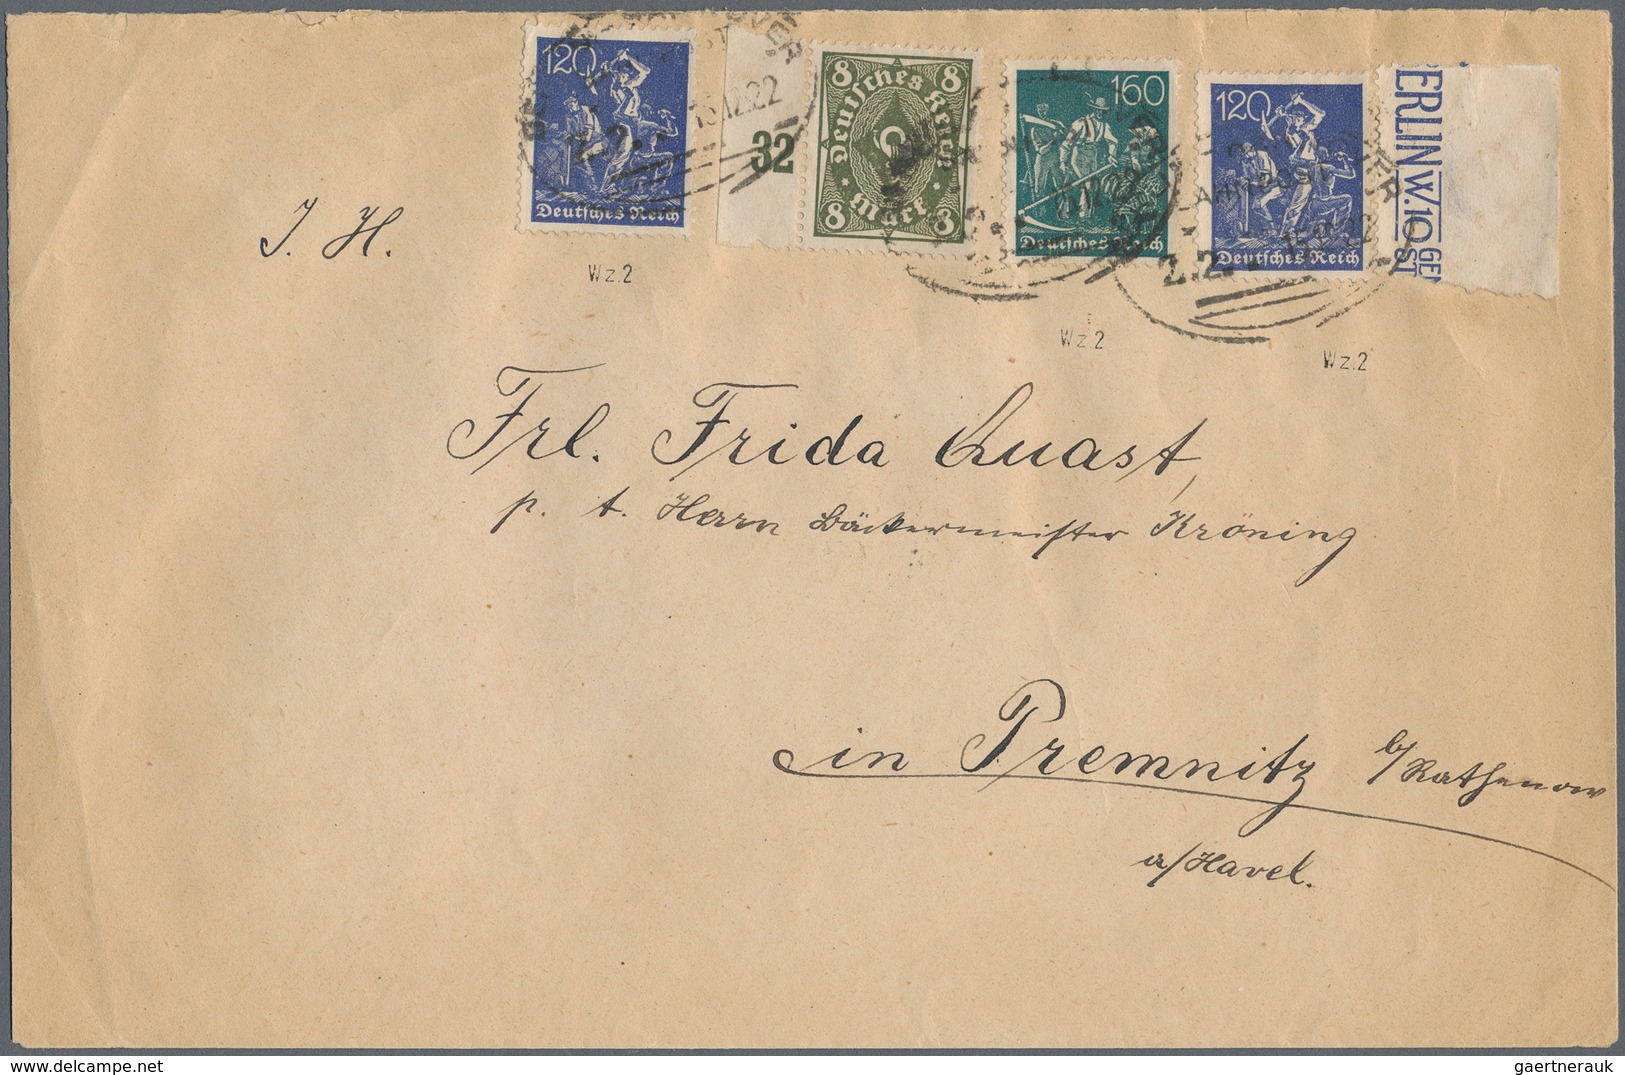 120
Deutsches Reich
HANNOVER
15.12.22
Z.2.
32
8 8
Deutsches Reich
8 Mark 8
160
Deutsches Reich
120
Deutsches Reich
15.12.22
Z.2.
ERLIN W.10
GE
OST
J. H.
Wz.2
Wz.2
Wz.2
Frl. Frida Quast,
p. t. Herrn Bäckermeister Kröning
in Premnitz b/Rathenow
a/Havel.
gaertnerauk